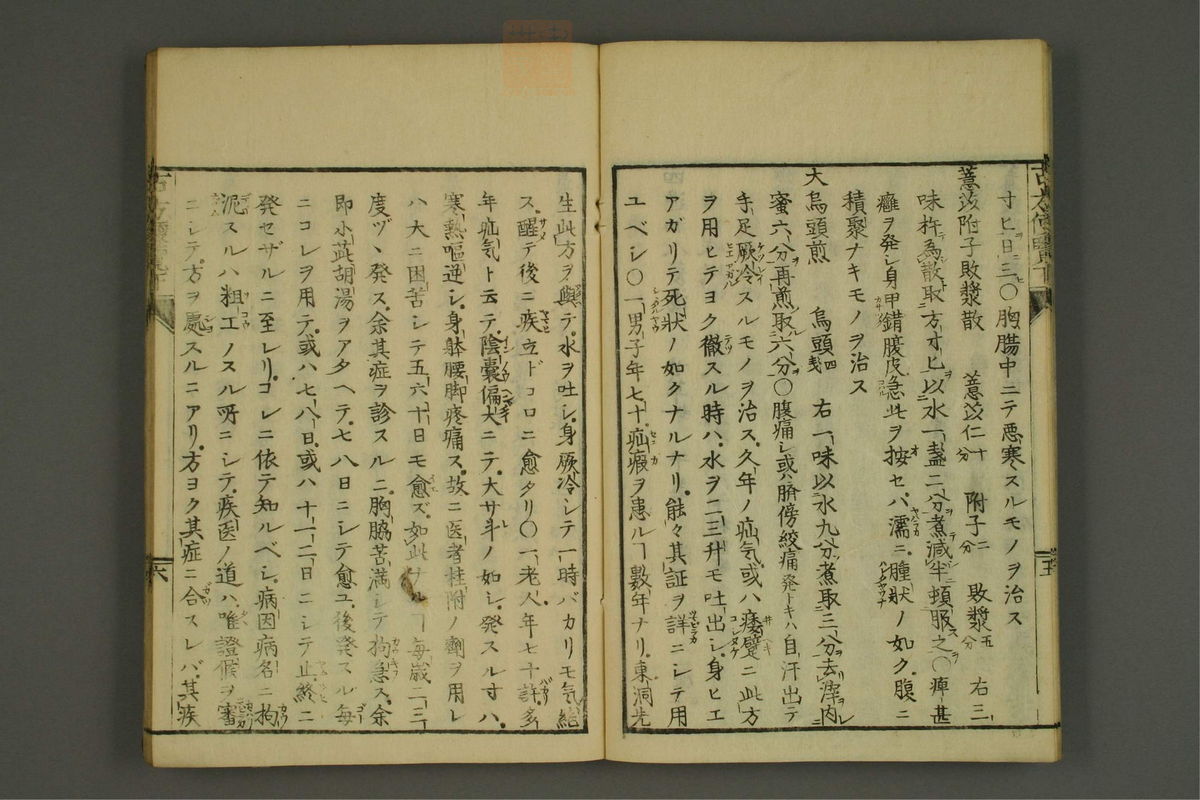 寸ヒ日三〇胸腸中ニテ悪寒スルモノヲ治ス
薏苡附子敗漿散　薏苡仁十分　附子二分　敗漿五分　右三
味杵為散取方寸ヒ以水一盞二分煮減半頓服之〇痺甚
癰ヲ発シ身甲錯腹皮急此ヲ按セバ濡ニ腫状ノ如ク腹ニ
積聚ナキモノヲ治ス
大烏頭煎　烏頭四戔　右一味以水九分煮取三分去滓内
蜜六分再煎取六分〇腹痛シ或ハ臍傍絞痛発トキハ自汗出テ
手足厥冷スルモノヲ治ス久年ノ疝気或ハ痿躄ニ此方
ヲ用ヒテヨク徹スル時ハ水ヲ二三升モ吐出シ身ヒエ
アガリテ死状ノ如クナルナリ能々其証ヲ詳ニシテ用
ユベシ〇一男子年七十疝瘕ヲ患ルヿ数年ナリ東洞先
生此方ヲ與テ水ヲ吐シ身厥冷シテ一時バカリモ気絶
ス醒テ後ニ疾立ドコロニ愈タリ〇一老人年七十許多
年疝気ト云テ陰嚢偏大ニテ大サ斗ノ如シ発スル寸ハ
寒熱嘔逆シ身躰腰脚疼痛ス故ニ医者桂附ノ劑ヲ用レ
ハ大ニ困苦シテ五六十日モ愈ズ如此ナルヿ毎歳二三
度ヅヽ発ス余其症ヲ診スルニ胸脇苦満シテ拘急ス余
即小茈胡湯ヲアタヘテ七八日ニシテ愈ユ後発スル毎
ニコレヲ用テ或ハ七八日或ハ十一二日ニシテ止終ニ
発セザルニ至レリコレニ依テ知ルベシ病因病名ニ拘
泥スルハ粗工ノスル所ニシテ疾医ノ道ハ唯證候ヲ審
ニシテ方ヲ處スルニアリ方ヨク其症ニ合スレバ其疾